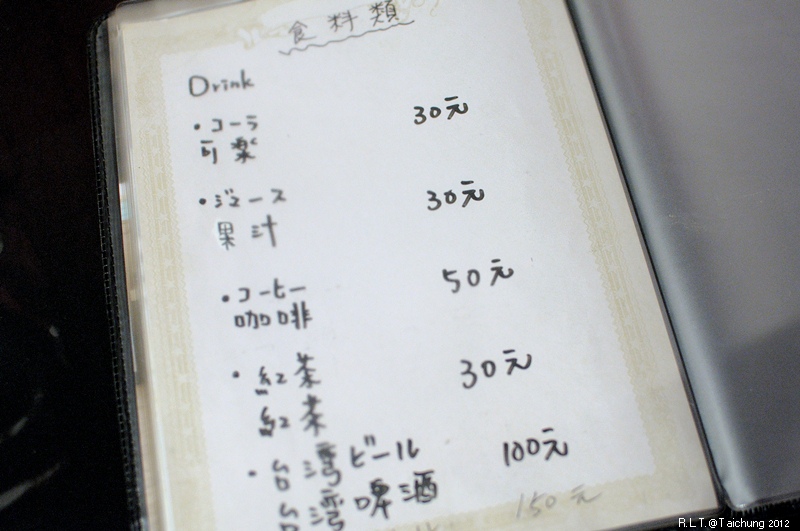 食料類
Drink
・コーラ 30元
可楽
・ジュース 30元
果汁
・コーヒー 50元
咖啡
・紅茶 30元
紅茶
・台湾ビール 100元
台湾啤酒
150元
R.L.T.@Taichung 2012